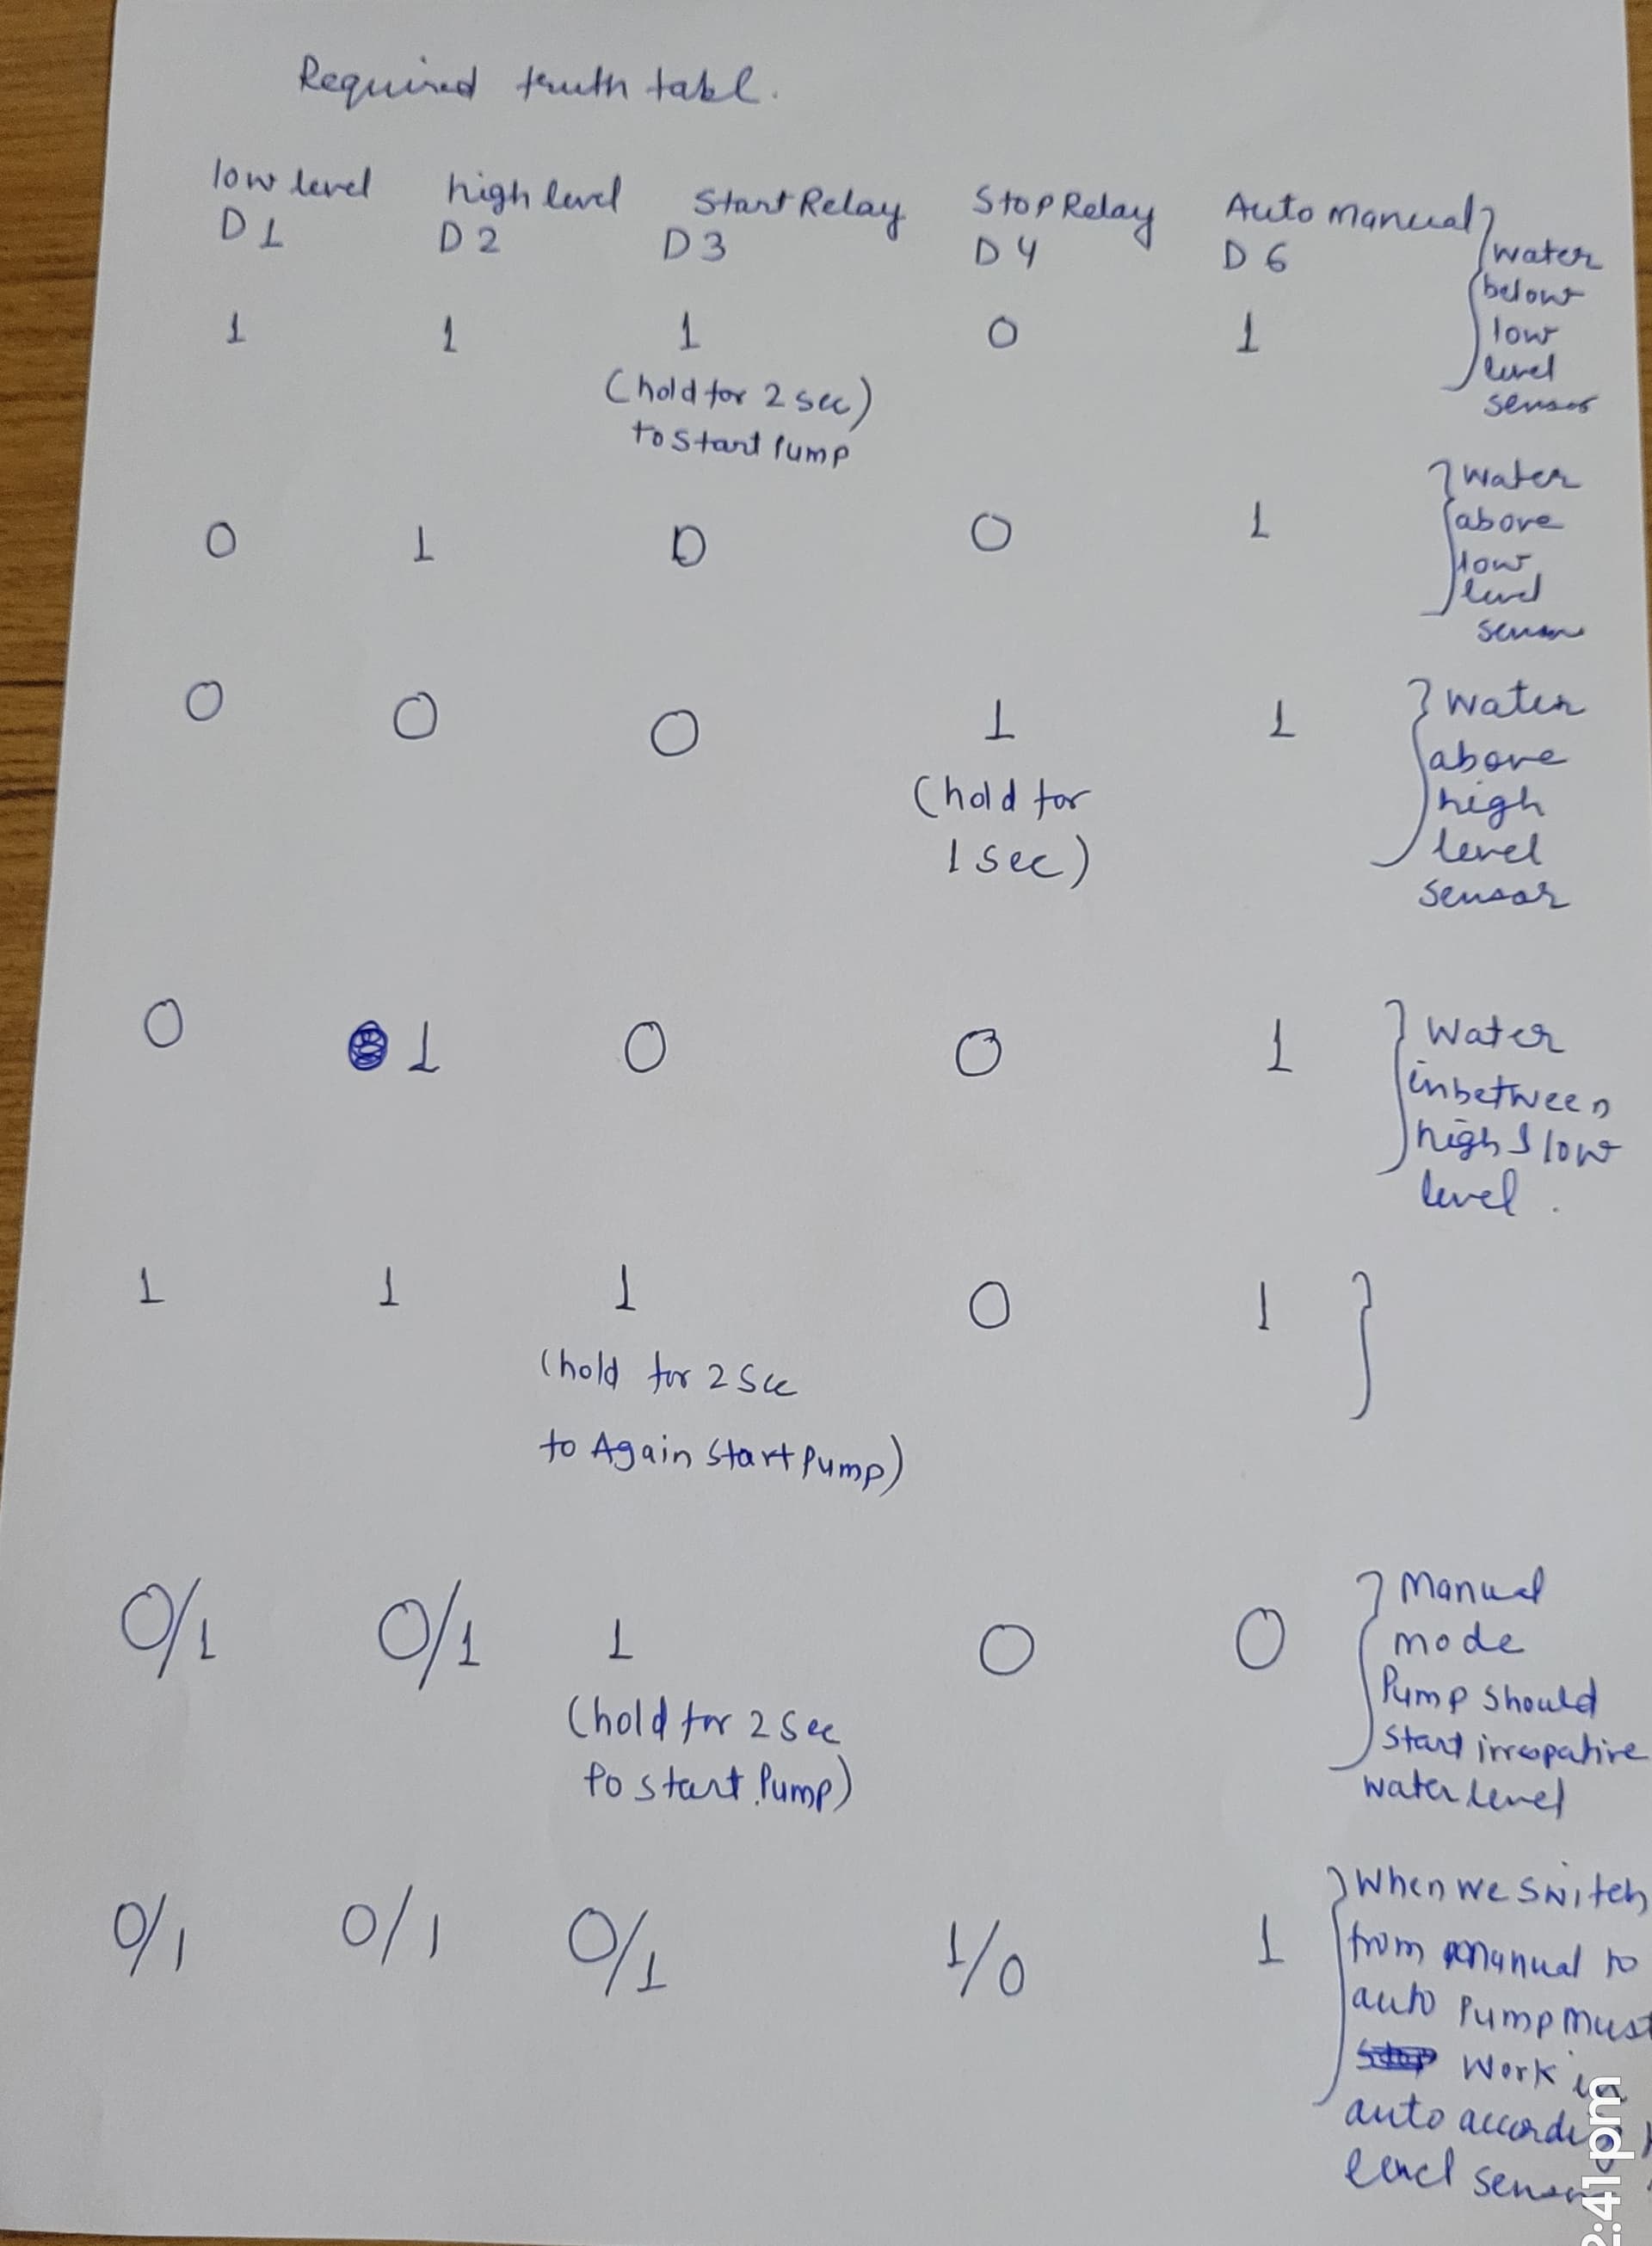 Required truth table.
low level high level Start Relay Stop Relay Auto Manual
D1 D2 D3 D4 D6
water
below
low
level
sensor
1 1 1 0 1
(hold for 2 sec)
to start Pump
water
above
low
level
0 1 0 0 1
0 0 0 1 1
(hold for
1 sec)
water
above
high
level
sensor
0 1 0 0 1
Water
inbetween
high & low
level.
1 1 1 0 1
(hold for 2 Sec
to Again start Pump)
0/1 0/1 1 0 0
(hold for 2 See
to start Pump)
Manual
mode
Pump should
start irrespative
water level
0/1 0/1 0/1 1/0 1
When we switch
from manual to
auto Pump must
work in
auto according
level
2:41pm